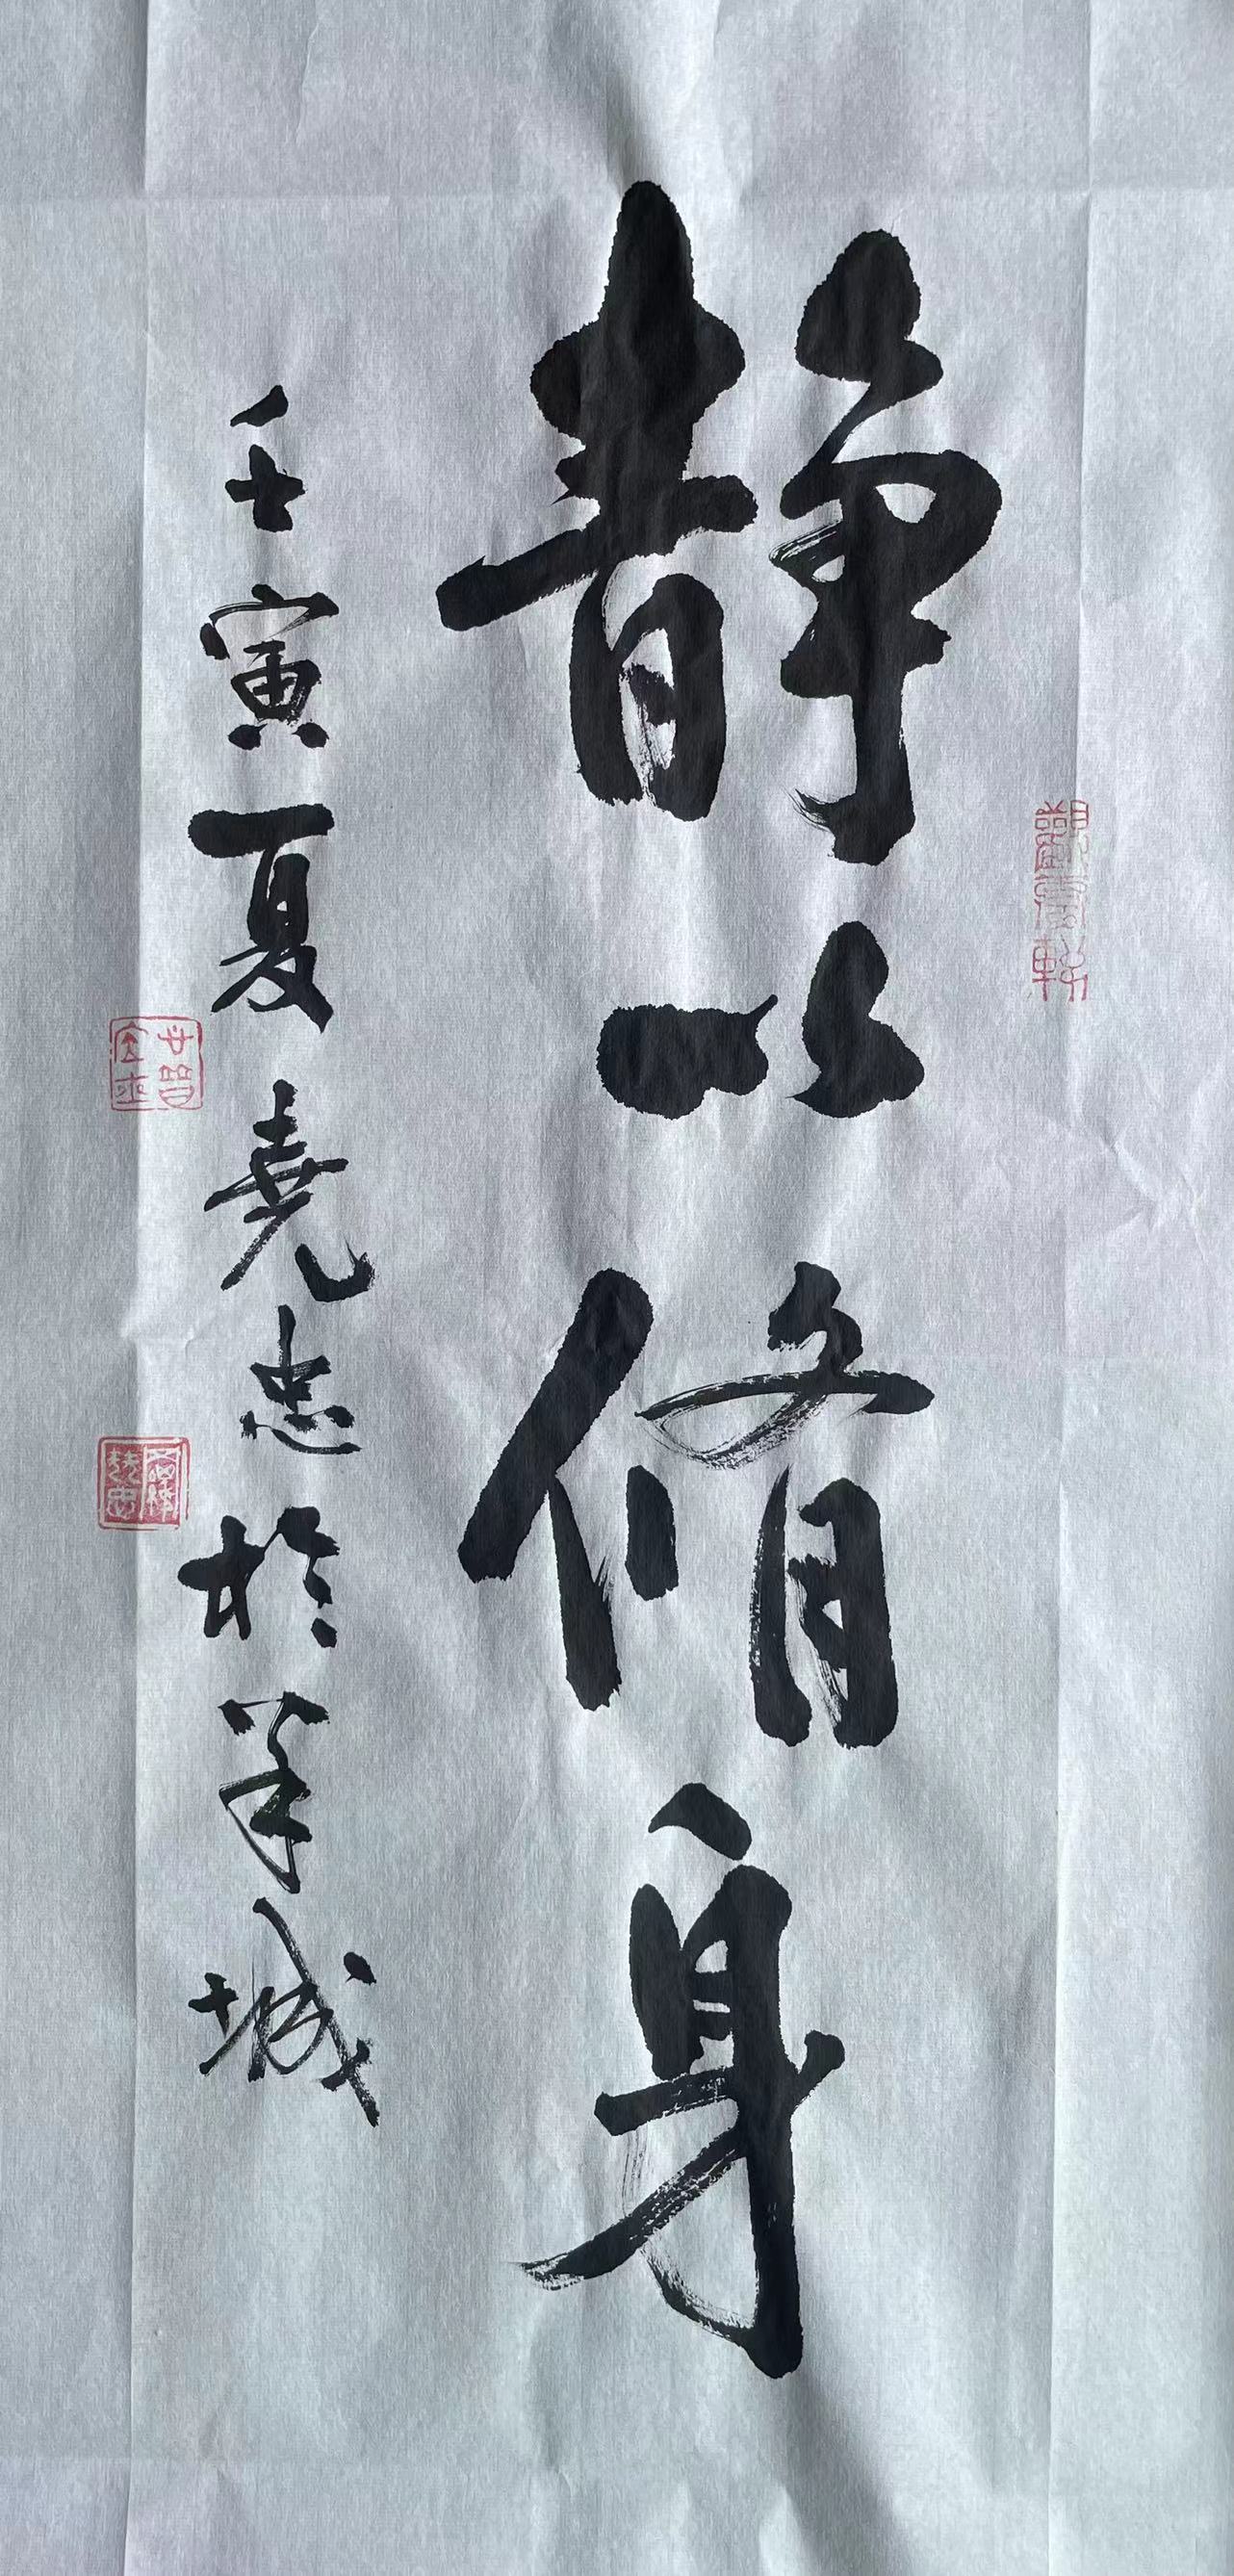 静以脩身
壬寅夏堯忠於羊城